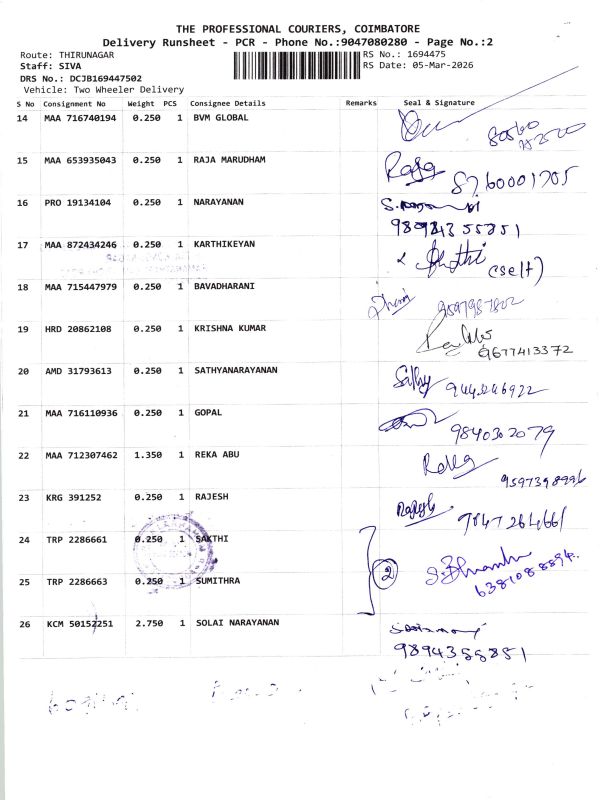 THE PROFESSIONAL COURIERS, COIMBATORE
Delivery Runsheet - PCR - Phone No.:9047080280 - Page No.:2
Route: THIRUNAGAR
RS No.: 1694475
Staff: SIVA
RS Date: 05-Mar-2026
DRS No.: DCJB169447502
Vehicle: Two Wheeler Delivery
S No Consignment No Weight PCS Consignee Details Remarks Seal & Signature
14 MAA 716740194 0.250 1 BVM GLOBAL
15 MAA 653935043 0.250 1 RAJA MARUDHAM Raja
8760001705
16 PRO 19134104 0.250 1 NARAYANAN
17 MAA 872434246 0.250 1 KARTHIKEYAN
(self)
18 MAA 715447979 0.250 1 BAVADHARANI
9597987802
19 HRD 20862108 0.250 1 KRISHNA KUMAR
9677413372
20 AMD 31793613 0.250 1 SATHYANARAYANAN Sathy
21 MAA 716110936 0.250 1 GOPAL
9840302079
22 MAA 712307462 1.350 1 REKA ABU
23 KRG 391252 0.250 1 RAJESH
24 TRP 2286661 0.250 1 SAKTHI
2
25 TRP 2286663 0.250 1 SUMITHRA
6381088894.
26 KCM 50152251 2.750 1 SOLAI NARAYANAN
9894355851